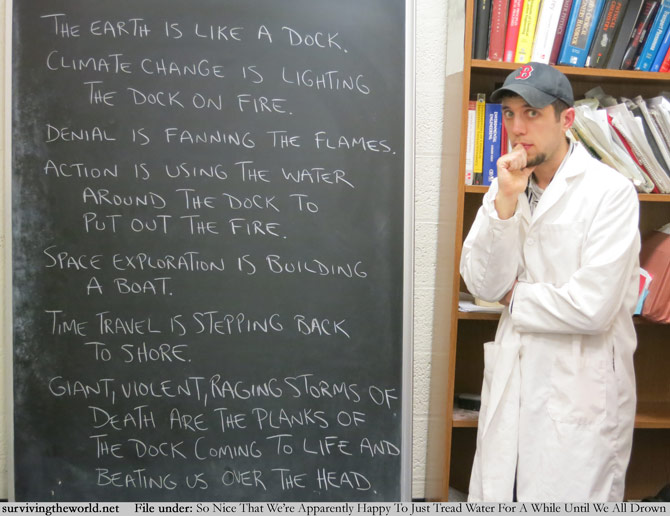 THE EARTH IS LIKE A DOCK.
CLIMATE CHANGE IS LIGHTING
THE DOCK ON FIRE.
DENIAL IS FANNING THE FLAMES.
ACTION IS USING THE WATER
AROUND THE DOCK TO
PUT OUT THE FIRE.
SPACE EXPLORATION IS BUILDING
A BOAT.
TIME TRAVEL IS STEPPING BACK
TO SHORE.
GIANT, VIOLENT, RAGING STORMS OF
DEATH ARE THE PLANKS OF
THE DOCK COMING TO LIFE AND
BEATING US OVER THE HEAD.
B
survivingtheworld.net File under: So Nice That We're Apparently Happy To Just Tread Water For A While Until We All Drown